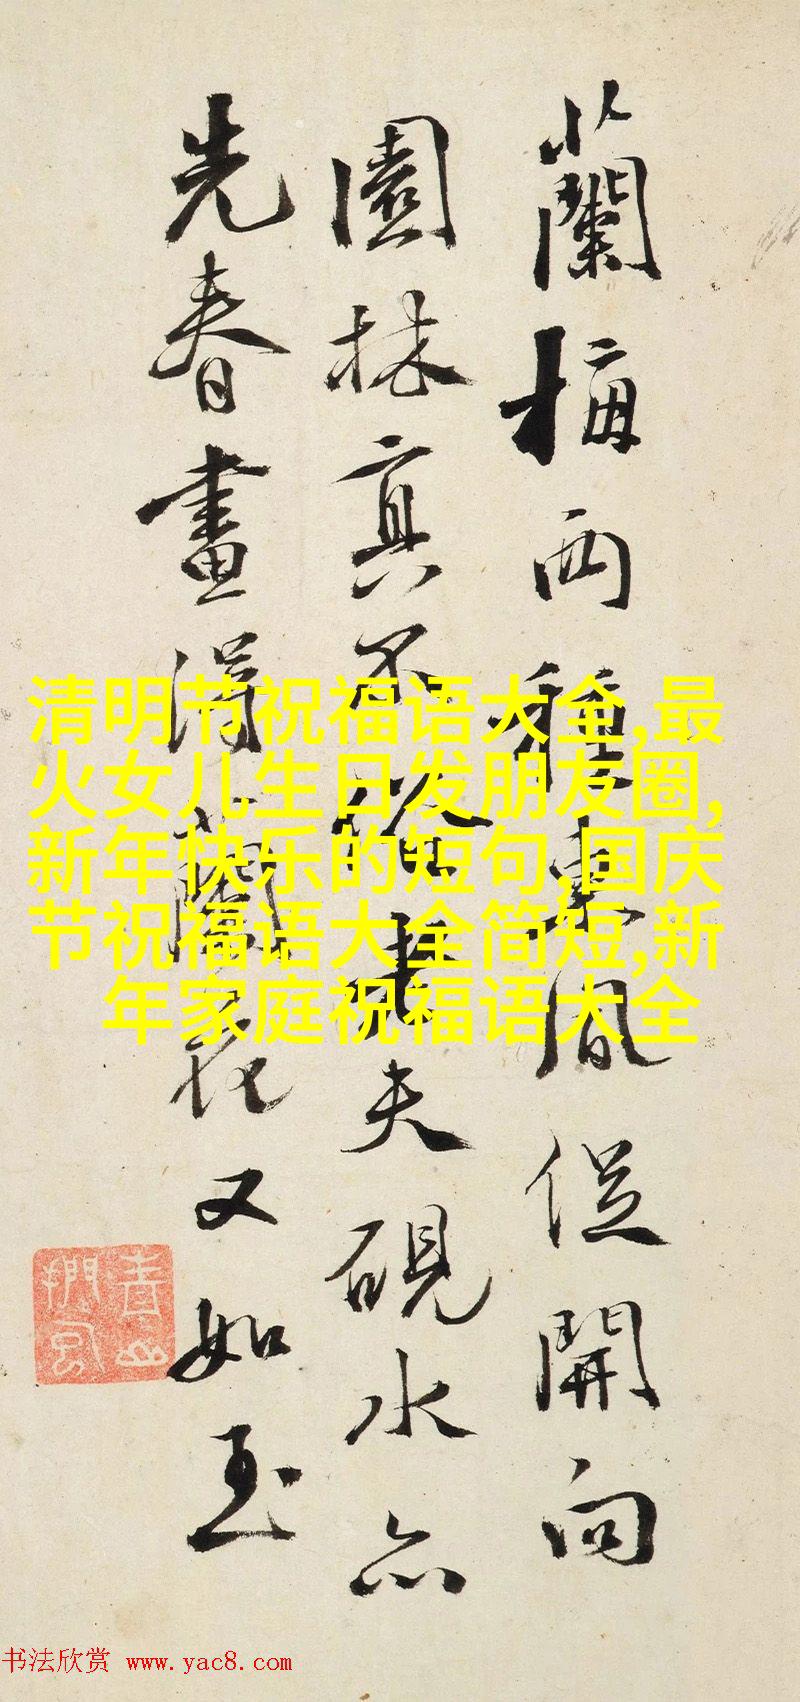 蘭梅兩種東風從開向
園林真不俗老夫硯水亦
先春畫得蘭花又如玉
清明节祝福语大全,最
火女儿生日发朋友圈,
新年快乐的短句,国庆
节祝福语大全简短,新
年家庭祝福语大全
书法欣赏 www.yac8.com